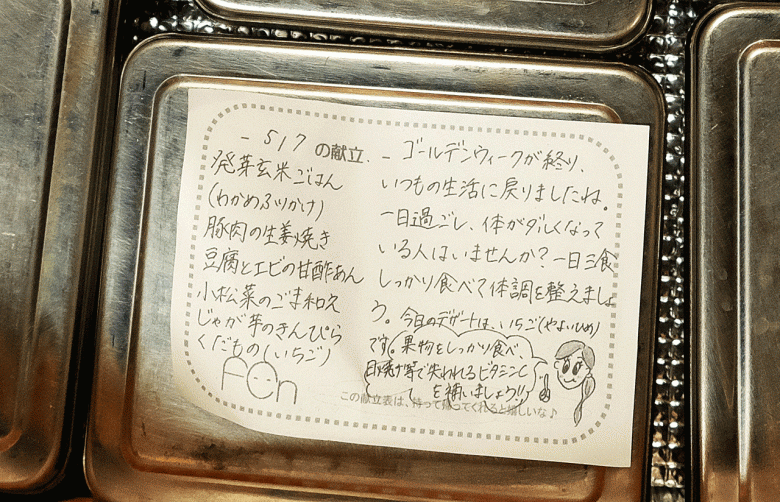 - 5/7 の献立. -
発芽玄米ごはん
(わかめふりかけ)
豚肉の生姜焼き
豆腐とエビの甘酢あん
小松菜のごま和え
じゃが芋のきんぴら
くだもの(いちご)
ゴールデンウィークが終り、
いつもの生活に戻りましたね。
一日過ごし、体がダルくなって
いる人はいませんか?一日三食
しっかり食べて体調を整えましょ
う。今日のデザートは、いちご(やよいひめ)
です。果物をしっかり食べ、
日焼け等で失われるビタミンC
を補いましょう!!
この献立表は、持って帰ってくれると嬉しいな♪